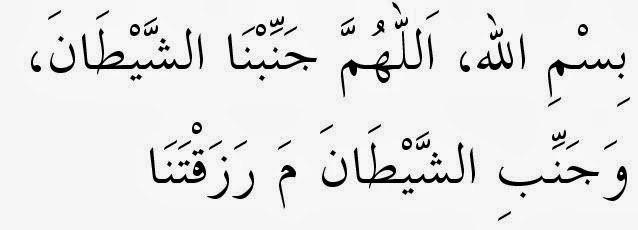 بِسْمِ الله، اَللّٰهُمَّ جَنِّبْنَا الشَّيْطَانَ،
وَجَنِّبِ الشَّيْطَانَ مَ رَزَقْتَنَا